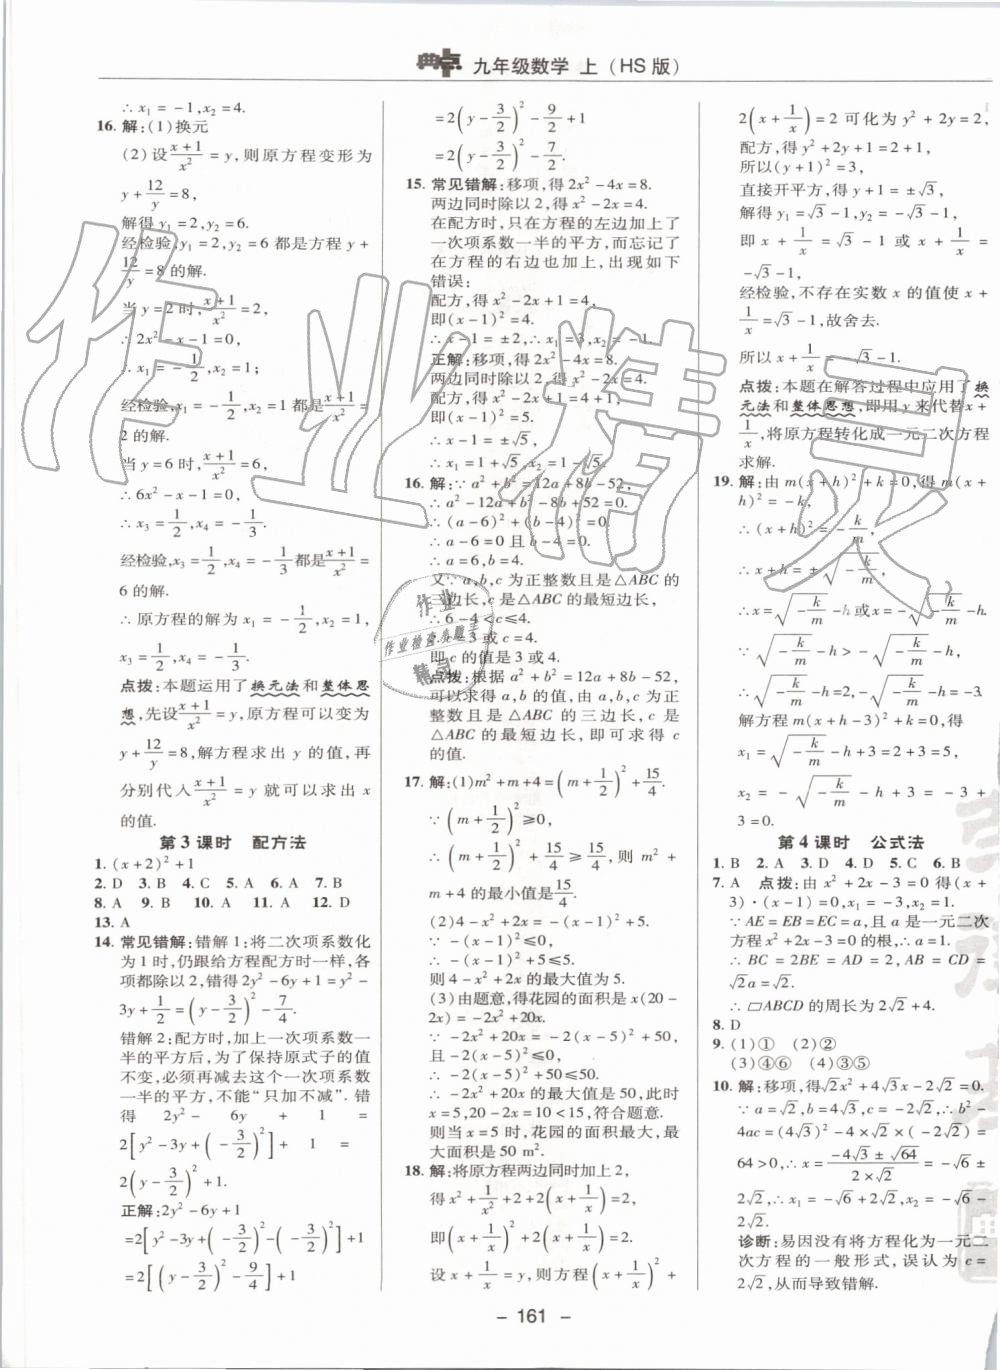 典中点 九年级数学 上(HS版)
∴x₁=-1,x₂=4.
16. 解:(1)换元
(2)设(x+1)/x²=y,则原方程变形为
y+12/y=8,
解得y₁=2,y₂=6.
经检验,y₁=2,y₂=6都是方程y+
12/y=8的解.
当y=2时,(x+1)/x²=2,
∴2x²-x-1=0,
∴x₁=-1/2,x₂=1;
经检验,x₁=-1/2,x₂=1是(x+1)/x²=
2的解.
当y=6时,(x+1)/x²=6,
∴6x²-x-1=0,
∴x₃=1/2,x₄=-1/3.
经检验,x₃=1/2,x₄=-1/3都是(x+1)/x²=
6的解.
∴原方程的解为x₁=-1/2,x₂=1,
x₃=1/2,x₄=-1/3.
点拨:本题运用了换元法和整体思
想,先设(x+1)/x²=y,原方程可以变为
y+12/y=8,解方程求出y的值,再
分别代入(x+1)/x²=y就可以求出x
的值.
第3课时 配方法
1. (x+2)²+1
2. D 3. B 4. C 5. A 6. A 7. B
8. A 9. B 10. A 11. A 12. D
13. A
14. 常见错解:错解1:将二次项系数化
为1时,仍跟给方程配方时一样,各
项都除以2,错得2y²-6y+1=y²-
3y+1/2=(y-3/2)²-7/4.
错解2:配方时,加上一次项系数一
半的平方后,为了保持原式子的值
不变,必须再减去这个一次项系数
一半的平方,不能“只加不减”.错
得 2y²-6y+1=
2[y²-3y+(-3/2)²]+1=
2(y-3/2)²+1.
正解:2y²-6y+1
=2[y²-3y+(-3/2)²-(-3/2)²]+1
=2[(y-3/2)²-9/4]+1
=2(y-3/2)²-9/2+1
=2(y-3/2)²-7/2.
15. 常见错解:移项,得2x²-4x=8.
两边同时除以2,得x²-2x=4.
在配方时,只在方程的左边加上了
一次项系数一半的平方,而忘记了
在方程的右边也加上,出现如下
错误:
配方,得x²-2x+1=4,
即(x-1)²=4.
∴x-1=±2,∴x₁=3,x₂=-1.
正解:移项,得2x²-4x=8.
两边同时除以2,得x²-2x=4.
配方,得x²-2x+1=4+1,
即(x-1)²=5.
∴x-1=±√5,
∴x₁=1+√5,x₂=1-√5.
16. 解:∵a²+b²=12a+8b-52,
∴a²-12a+b²-8b+52=0.
∴(a-6)²+(b-4)²=0.
∴a-6=0且b-4=0.
∴a=6,b=4.
又∵a,b,c为正整数且是△ABC的
三边长,c是△ABC的最短边长,
∴6-4<c≤4.
∴c=3或c=4.
即c的值是3或4.
点拨:根据a²+b²=12a+8b-52,
可以求得a,b的值,由a,b,c为正
整数且是△ABC的三边长,c是
△ABC的最短边长,即可求得c
的值.
17. 解:(1)m²+m+4=(m+1/2)²+15/4.
∵(m+1/2)²≥0,
∴(m+1/2)²+15/4≥15/4,则m²+
m+4的最小值是15/4.
(2)4-x²+2x=-(x-1)²+5.
∵-(x-1)²≤0,
∴-(x-1)²+5≤5.
则4-x²+2x的最大值为5.
(3)由题意,得花园的面积是x(20-
2x)=-2x²+20x.
∵-2x²+20x=-2(x-5)²+50,
且-2(x-5)²≤0,
∴-2(x-5)²+50≤50.
∴-2x²+20x的最大值是50,此时
x=5,20-2x=10<15,符合题意.
则当x=5时,花园的面积最大,最
大面积是50 m².
18. 解:将原方程两边同时加上2,
得x²+1/x²+2+2(x+1/x)=2,
即(x+1/x)²+2(x+1/x)=2.
设x+1/x=y,则方程(x+1/x)²+
2(x+1/x)=2可化为y²+2y=2,
配方,得y²+2y+1=2+1,
所以(y+1)²=3,
直接开平方,得y+1=±√3,
解得y₁=√3-1,y₂=-√3-1.
即x+1/x=√3-1或x+1/x=
-√3-1.
经检验,不存在实数x的值使x+
1/x=√3-1,故舍去.
所以x+1/x=-√3-1.
点拨:本题在解答过程中应用了换
元法和整体思想,即用y来代替x+
1/x,将原方程转化成一元二次方程
求解.
19. 解:由m(x+h)²+k=0,得m(x+
h)²=-k,
∴(x+h)²=-k/m,
∴x+h=±√(-k/m),
∴x=√(-k/m)-h或x=-√(-k/m)-h.
∵√(-k/m)-h>-√(-k/m)-h,
∴√(-k/m)-h=2,-√(-k/m)-h=-3.
解方程m(x+h-3)²+k=0,得
x₁=√(-k/m)-h+3=2+3=5,
x₂=-√(-k/m)-h+3=-3+
3=0.
第4课时 公式法
1. B 2. A 3. D 4. D 5. C 6. B
7. A 点拨:由x²+2x-3=0得(x+
3)·(x-1)=0,x₁=-3,x₂=1.
∵AE=EB=EC=a,且a是一元二次
方程x²+2x-3=0的根,∴a=1.
∴BC=2BE=AD=2,AB=CD=
√2a=√2.
∴▱ABCD的周长为2√2+4.
8. D
9. (1)① (2)②
(3)④⑥ (4)③⑤
10. 解:移项,得√2x²+4√3x-2√2=0.
∵a=√2,b=4√3,c=-2√2,∴b²-
4ac=(4√3)²-4×√2×(-2√2)=
64>0,∴x=(-4√3±√64)/(2×√2)=-√6±
2√2,∴x₁=-√6+2√2,x₂=-√6-
2√2.
诊断:易因没有将方程化为一元二
次方程的一般形式,误认为c=
2√2,从而导致错解.
- 161 -
作业精灵
作业
作业检查小助手
精灵